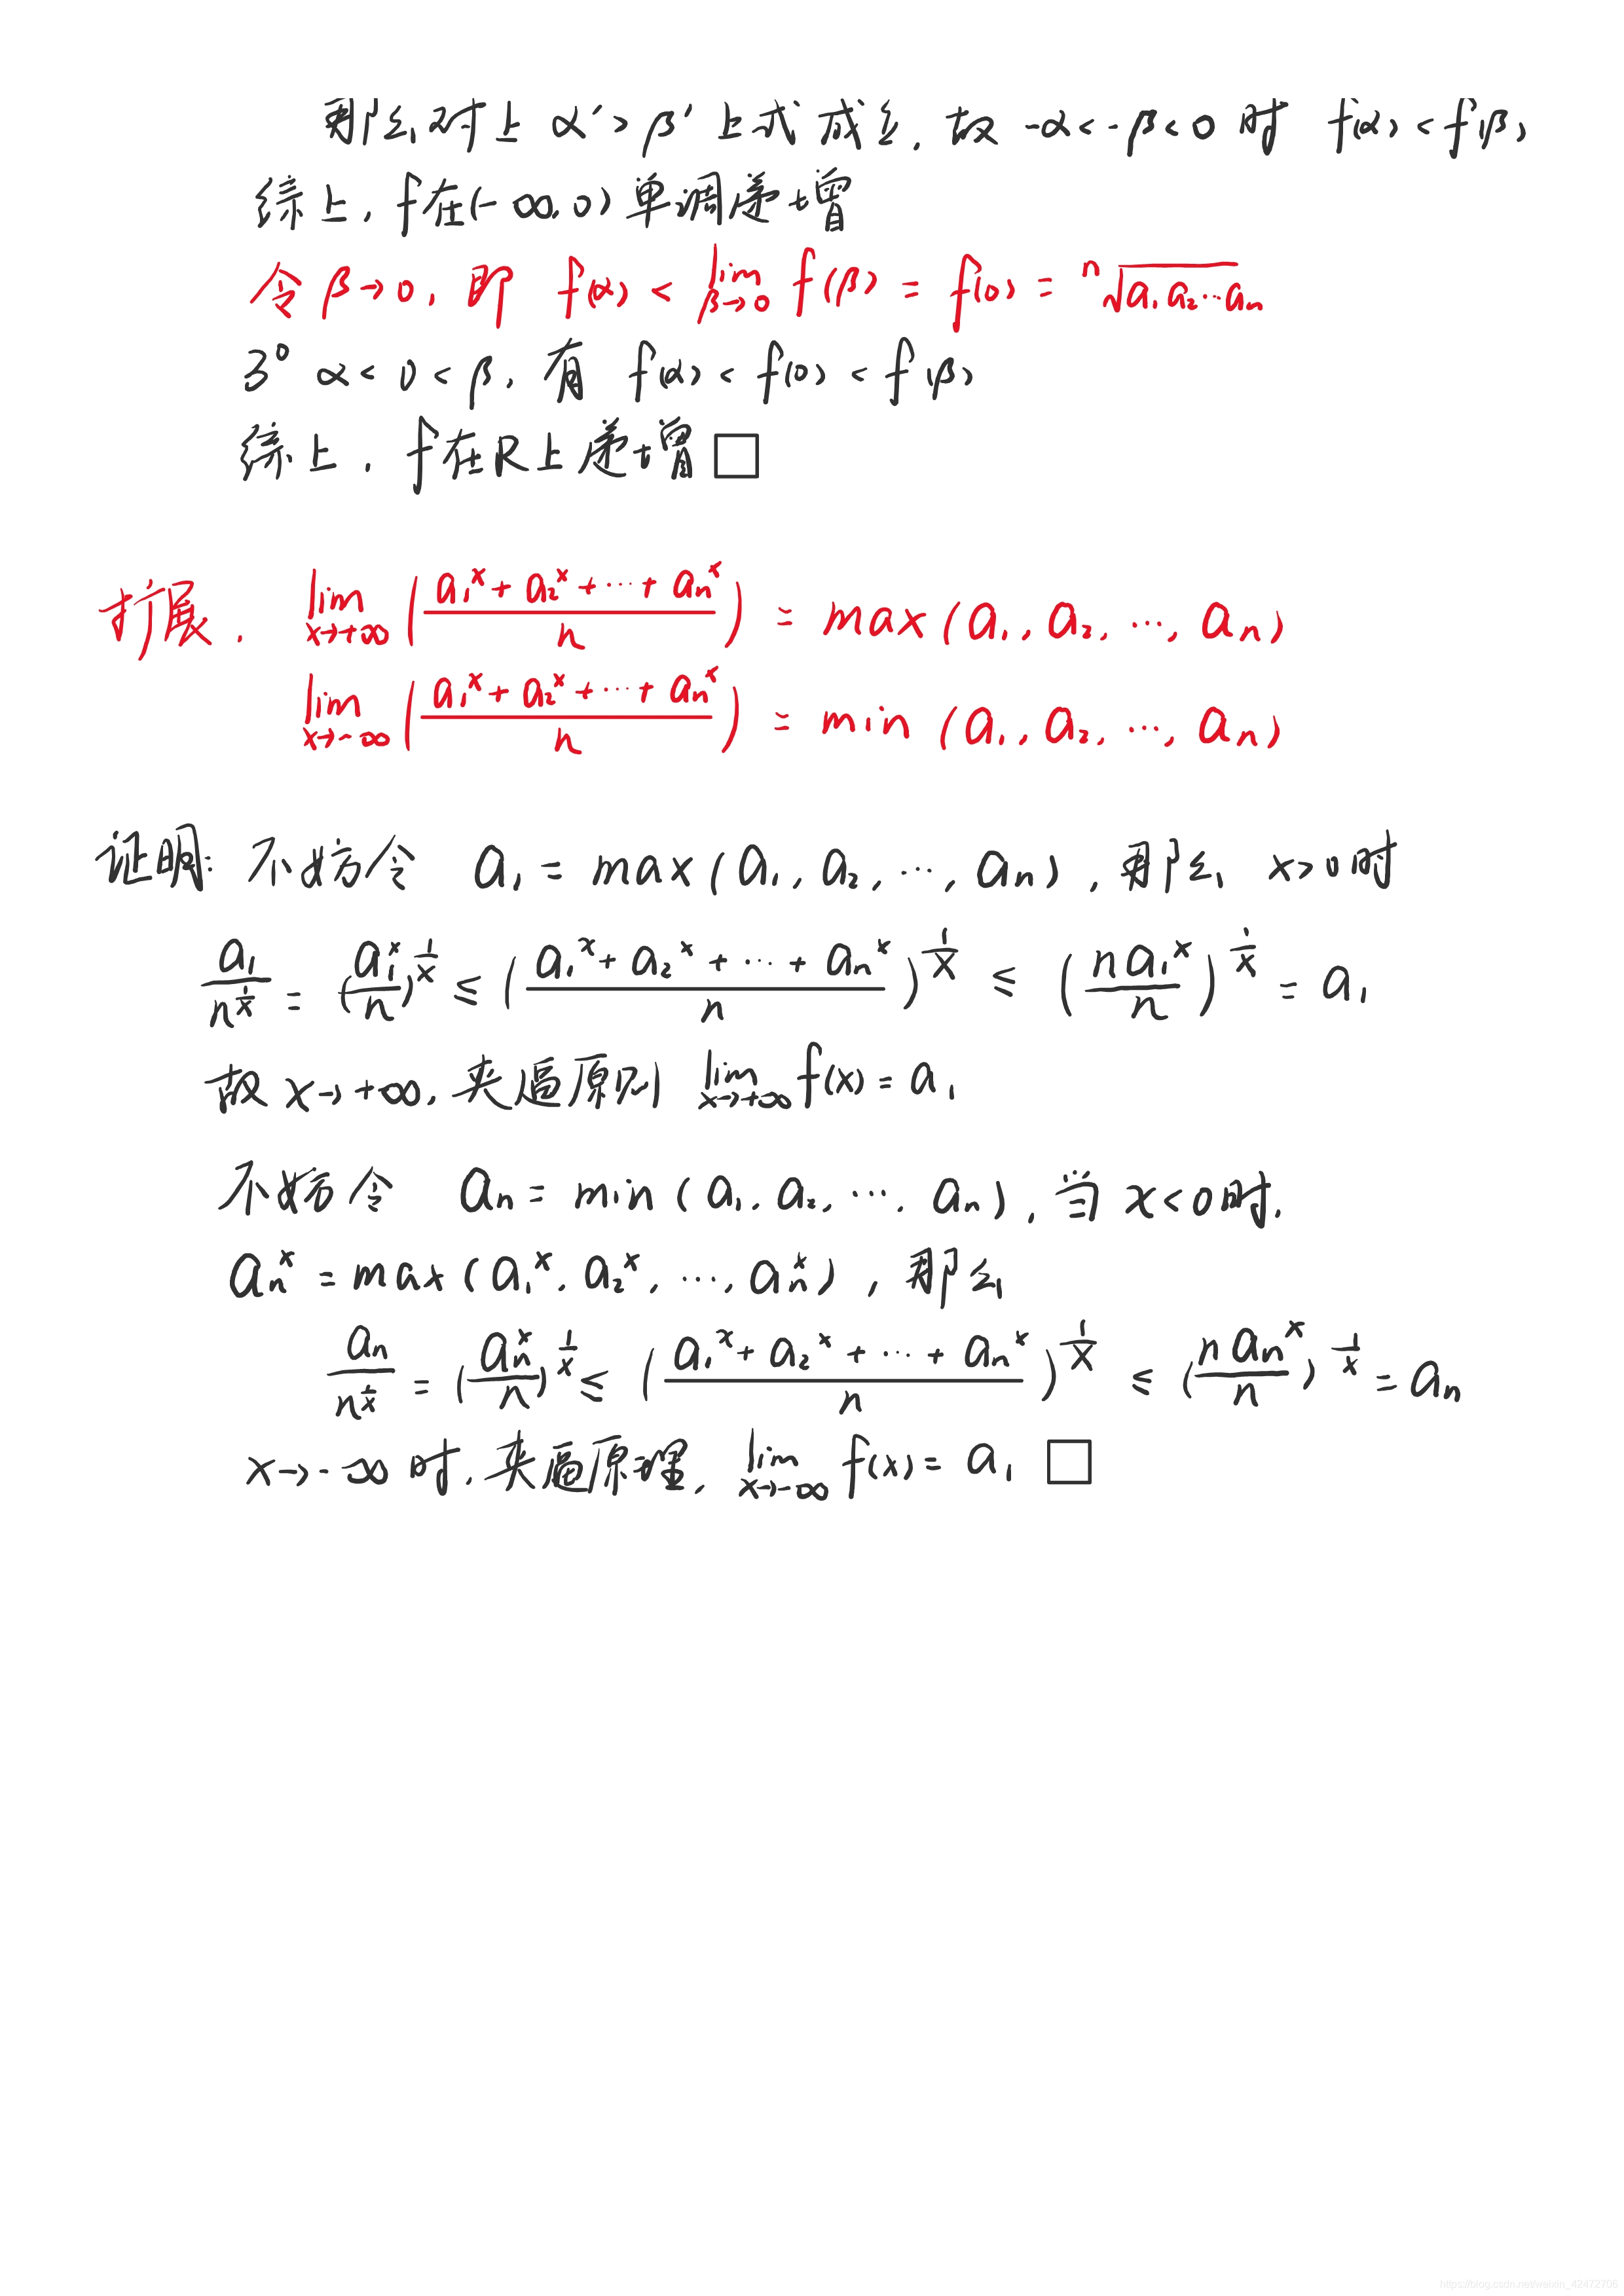 那么对上 α′>β′ 上式成立, 故 -α<-β<0 时 f(α)<f(β)
综上, f在(-∞,0)单调递增
令β→0, 即 f(α) < lim_{β→0} f(β) = f(0) = ⁿ√(a₁a₂⋯aₙ)
3° α<0<β, 有 f(α)<f(0)<f(β)
综上, f在R上递增□
扩展. lim_{x→+∞} ((a₁ˣ+a₂ˣ+⋯+aₙˣ)/n) = max(a₁,a₂,⋯,aₙ)
lim_{x→-∞} ((a₁ˣ+a₂ˣ+⋯+aₙˣ)/n) = min(a₁,a₂,⋯,aₙ)
证明: 不妨令 a₁ = max(a₁,a₂,⋯,aₙ), 那么 x>0时
a₁/n^{1/x} = (a₁ˣ/n)^{1/x} ≤ ((a₁ˣ+a₂ˣ+⋯+aₙˣ)/n)^{1/x} ≤ (na₁ˣ/n)^{1/x} = a₁
故x→+∞, 夹逼原则 lim_{x→+∞} f(x) = a₁
不妨令 aₙ = min(a₁,a₂,⋯,aₙ), 当x<0时.
aₙˣ = max(a₁ˣ,a₂ˣ,⋯,aₙˣ), 那么
aₙ/n^{1/x} = (aₙˣ/n)^{1/x} ≤ ((a₁ˣ+a₂ˣ+⋯+aₙˣ)/n)^{1/x} ≤ (naₙˣ/n)^{1/x} = aₙ
x→-∞时, 夹逼原理, lim_{x→-∞} f(x) = a₁ □
https://blog.csdn.net/weixin_42472706